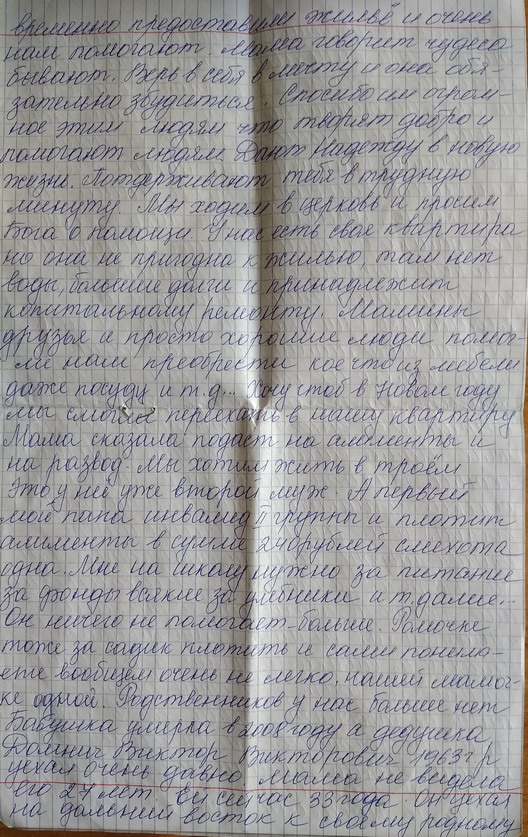 временно предоставили жильё и очень
нам помогают. Мама говорит чудеса
бывают. Верь в себя в мечту и она обя-
зательно збудиться. Спосибо им огром-
ное этим людям что творят добро и
помогают людям. Дают надежду в новую
жизнь. Потдерживают тебя в трудную
минуту. Мы ходим в церковь и просим
Бога о помощи. У нас есть своя квартира
но она не пригодна к жилью, там нет
воды, большие долги и принадлежит
копитальному ремонту. Мамины
друзья и просто хорошие люди помог-
ли нам преобрести кое что из мебели
даже посуду и т.д... Хочу чтоб в Новом году
мы смогли переехать в нашу квартиру
Мама сказала подаст на алименты и
на развод. Мы хотим жить в троём
Это у неё уже второй муж. А первый
мой папа инвалид II группы и плотит
алименты в сумме 240 рублей смехота
одна. Мне на школу нужно за питание
за фонды всякие за учебники и т.далие...
Он ничего не помогает больше. Ромочке
тоже за садик плотить и сами понима-
ете вообщем очень не легко нашей мамоч-
ке одной. Родственников у нас больше нет
Бабушка умерла в 2008 году а дедушка
Виктор Викторович 1963г/р
уехал очень давно. Мама не видела
его 27 лет. Ей сейчас 33 года. Он уехал
на дальний восток к своему родному